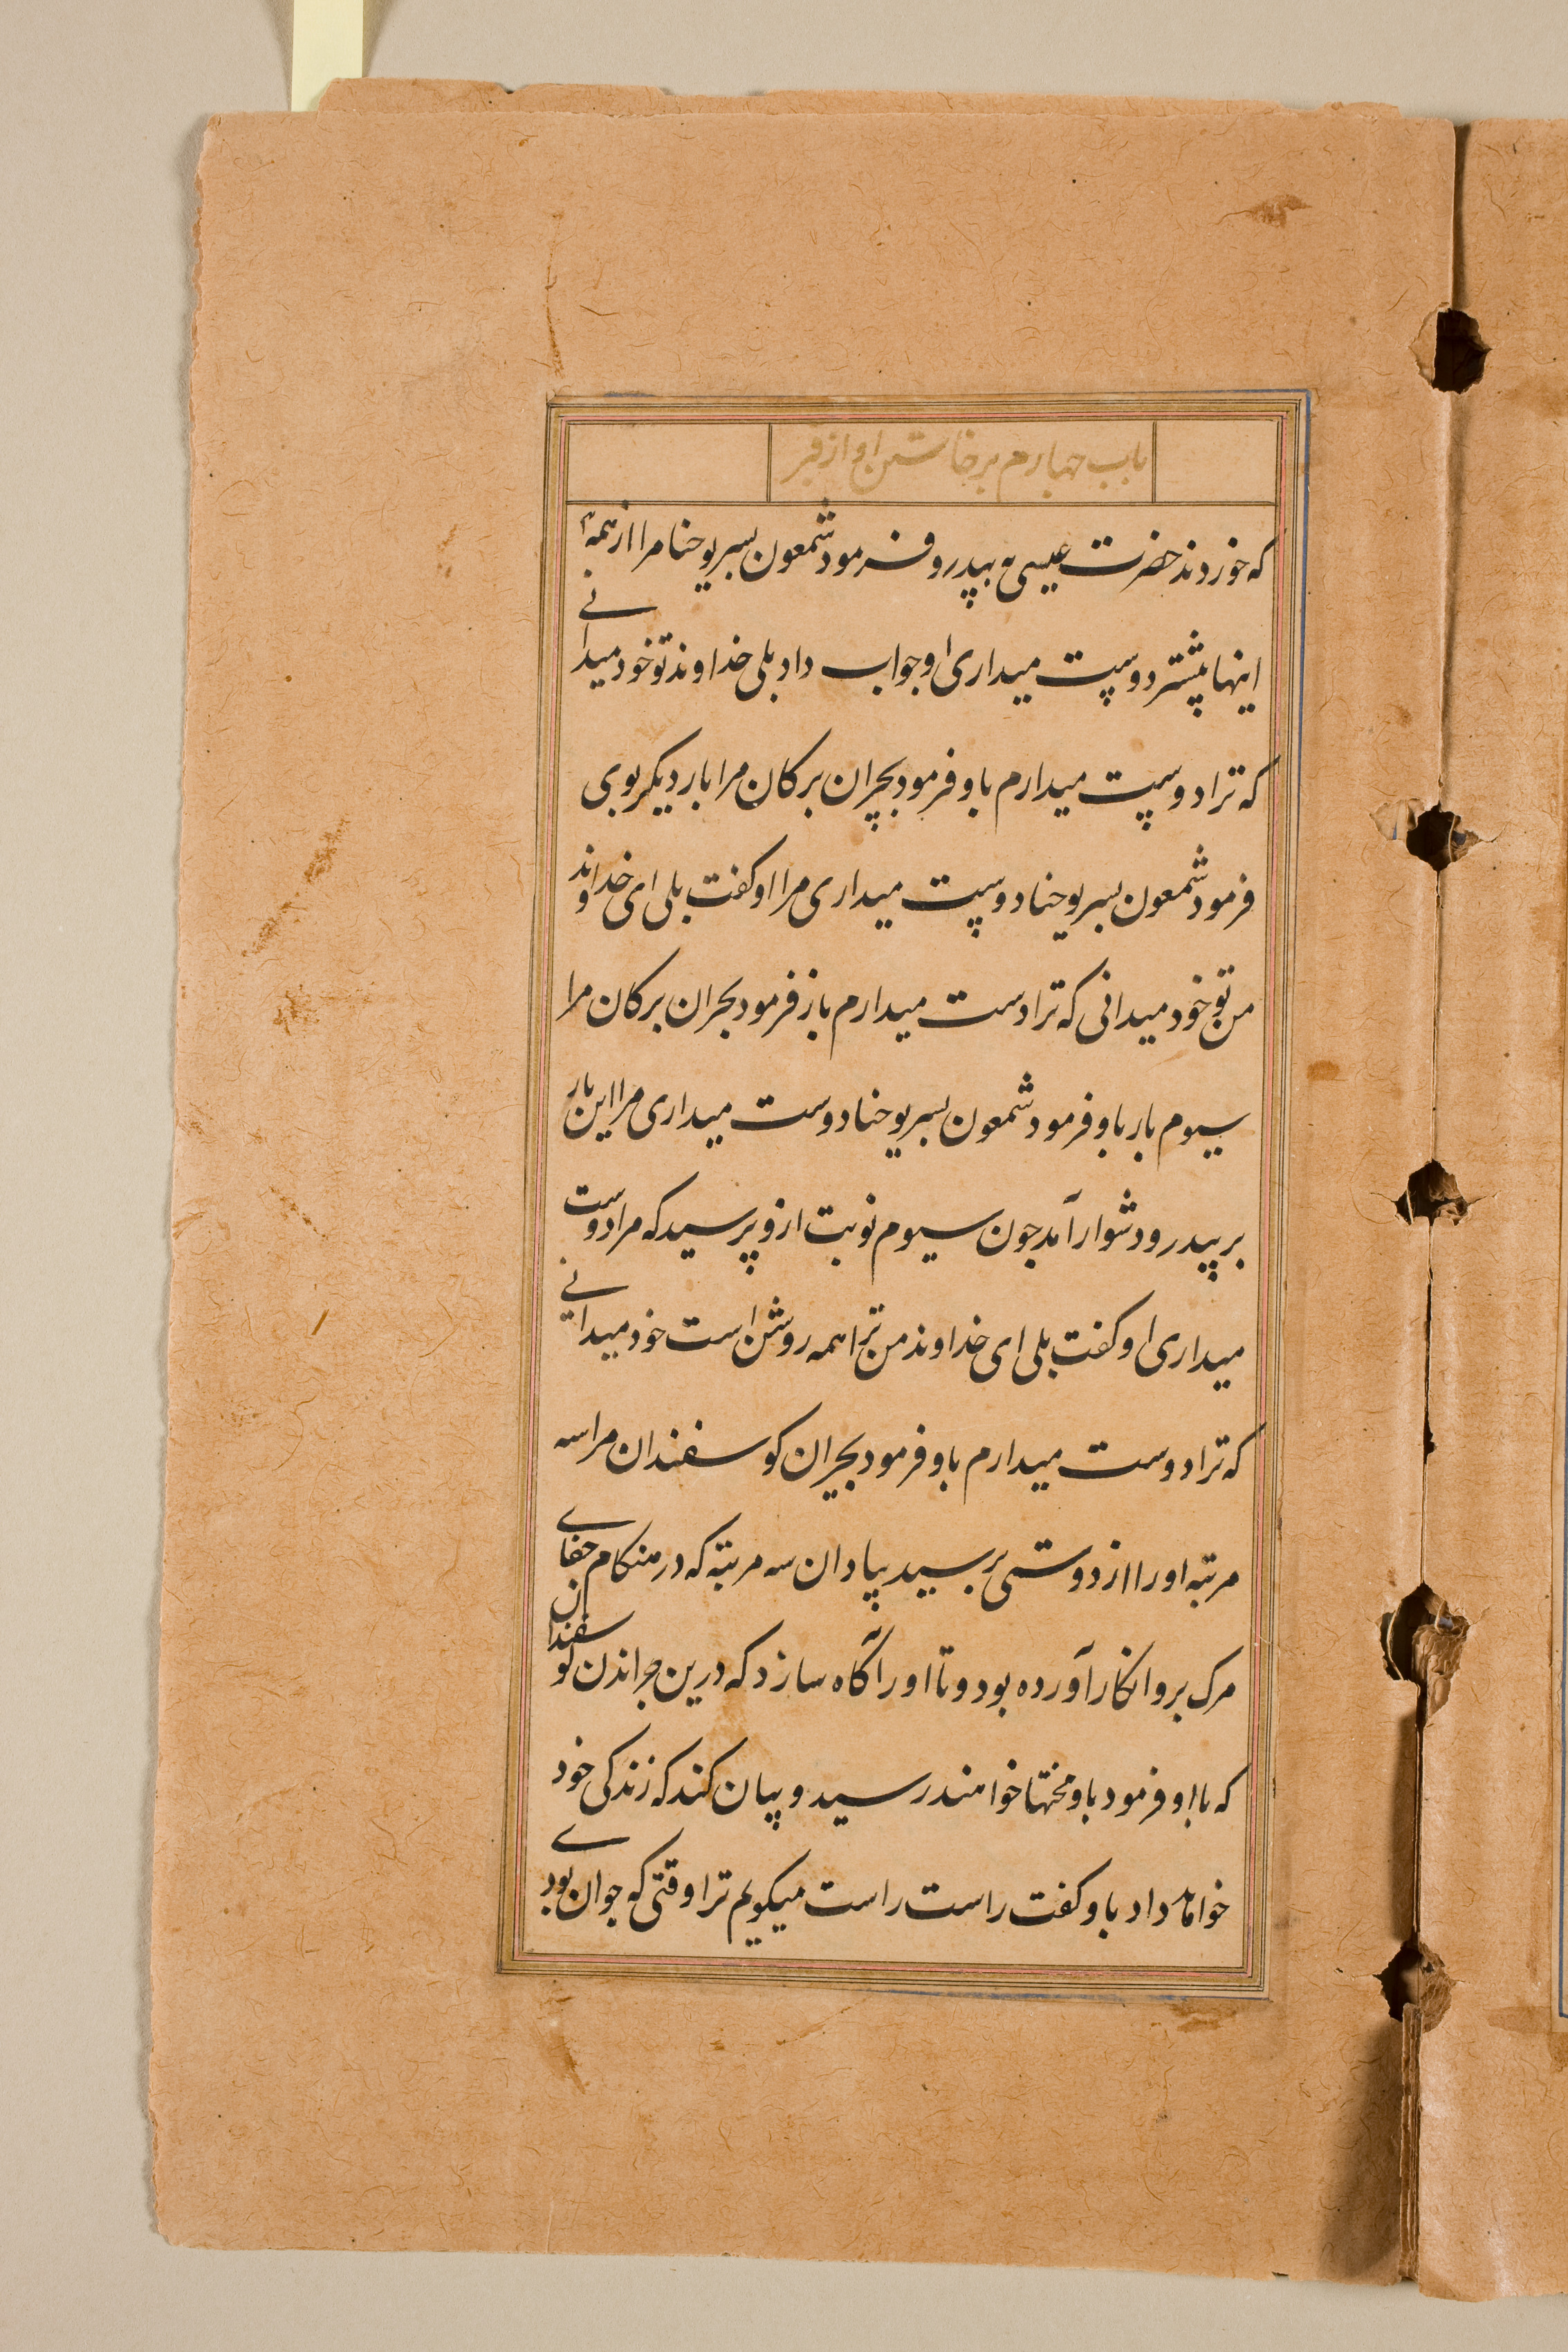 باب چهارم برخاستن او از قبر
که خوردند حضرت عیسی ع بپیدرو فرمود شمعون پسر یوحنا مرا از همه
اینها بیشتر دوست میداری او جواب داد بلی خداوند تو خود میدانی
که ترا دوست میدارم باو فرمود بچران برکان مرا بار دیکر بوی
فرمود شمعون پسر یوحنا دوست میداری مرا او کفت بلی ای خداوند
من تو خود میدانی که ترا دست میدارم باز فرمود بچران برکان مرا
سیوم بار باو فرمود شمعون پسر یوحنا دوست میداری مرا این بار
بر پیدرو دشوار آمد جون سیوم نوبت ازو پرسید که مرا دوست
میداری او کفت بلی ای خداوند من ترا همه روشن است خود میدانی
که ترا دوست میدارم باو فرمود بچران کوسفندان مرا سه
مرتبه او را از دوستی پرسید بپادان سه مرتبه که در هنکام جفای
مرک برو انکار آورده بود و تا او را آکاه سازد که درین چراندن کوسفندان
که با او فرمود باو محنتها خواهند رسید و بیان کند که زندکی خود
خواهد داد باو کفت راست راست میکویم ترا وقتی که جوان بودی